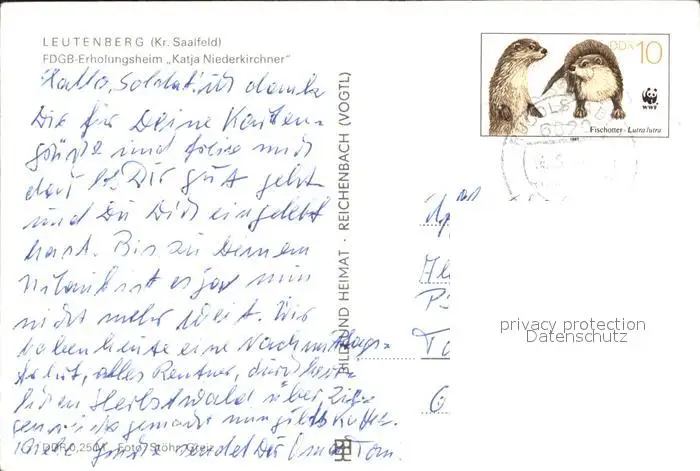 LEUTENBERG (Kr. Saalfeld)
FDGB-Erholungsheim „Katja Niederkirchner"
Hallo, Soldat! Ich danke
Dir für Deine Karten-
grüße und freue mich
daß es Dir gut geht
und Du Dich eingelebt
hast. Bis zu Deinem
Urlaub ist es ja nun
nicht mehr weit. Wir
haben heute eine Nachmittags-
fahrt, alles Rentner, durch
Herbstwald über
gemacht nun gibts Kaffee.
Grüße sendet Dir Oma
DDR 0,25 M Foto: Stöhr, Greiz
BILD UND HEIMAT · REICHENBACH (VOGTL)
DDR 10
WWF
Fischotter - Lutra lutra
1987
privacy protection
Datenschutz